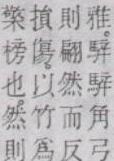 雅。騂騂角弓
則翩然而反
損傷。以竹爲
檠榜也。然則